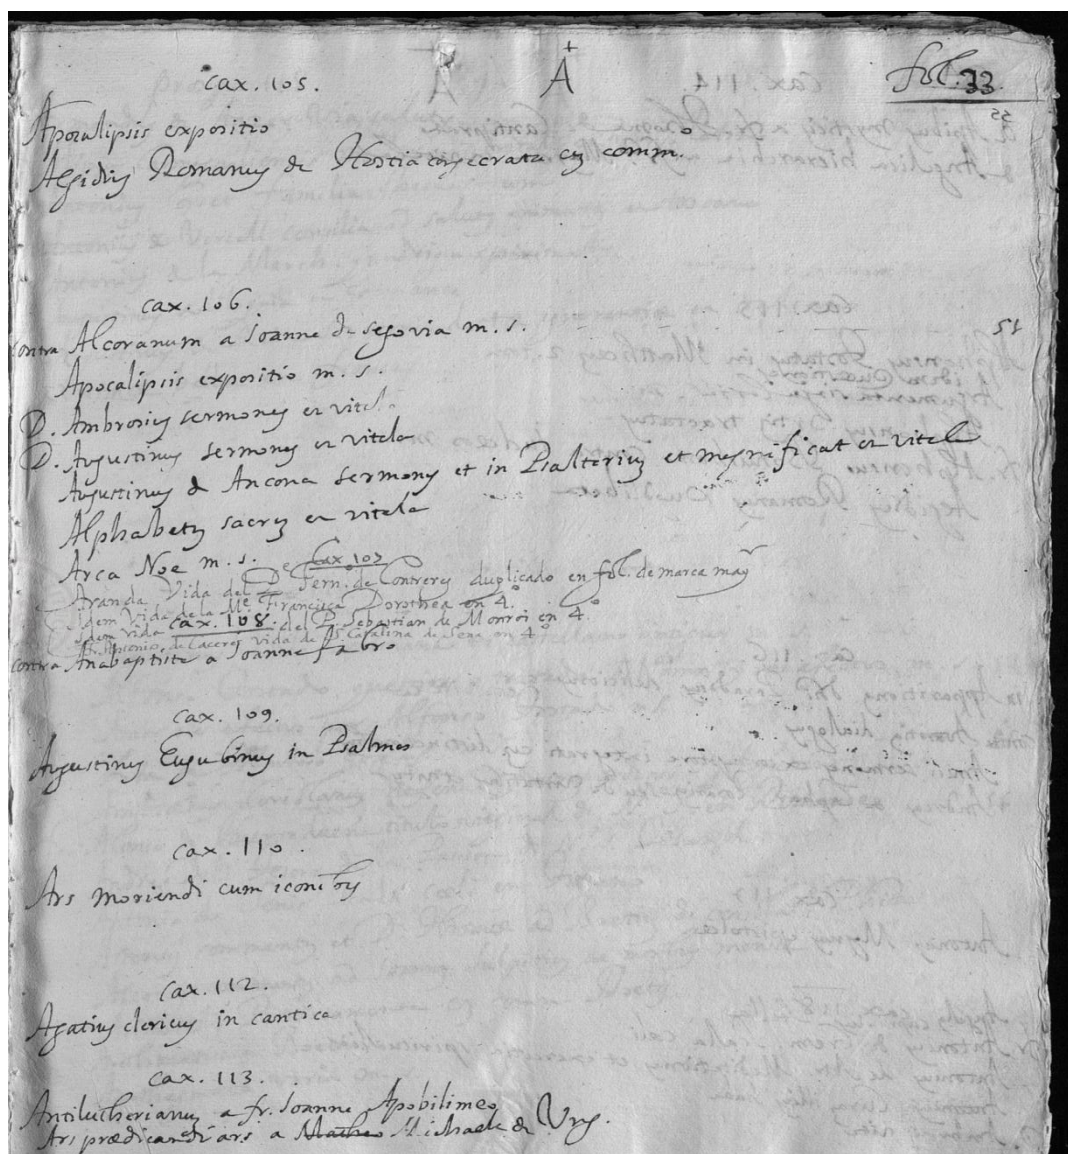 A
fol. 33.
cax. 105.
Apocalipsis expositio
Aegidius Romanus de Hostia consecrata cum comm.º
cax. 106.
contra Alcoranum a Joanne de segovia m. s.
Apocalipsis expositio m. s.
D. Ambrosius sermones ex vitel.
D. Augustinus sermones ex vitela
Augustinus de Ancona sermones et in Psalterium et magnificat ex vitela
Alphabetum sacrum ex vitela
Arca Noe m. s.
Cax. 107
Aranda Vida del Pe. Fern. de Contreras duplicado en fol. de marca may
Idem Vida de la Me. Francisca Dorothea en 4º
Idem vida del P. Sebastian de Monroi en 4º
cax. 108.
Fr. Antonio de Caceres vida de Sta. Catalina de Sena en 4º
contra Anabaptiste a Joanne fabro
cax. 109.
Augustinus Eugubinus in Psalmos
cax. 110.
Ars moriendi cum iconibus
cax. 112.
Agatius clericus in cantica
cax. 113.
Antilutherianus a fr. Joanne Apobilimeo
Ars praedicandi ars a Michaele de